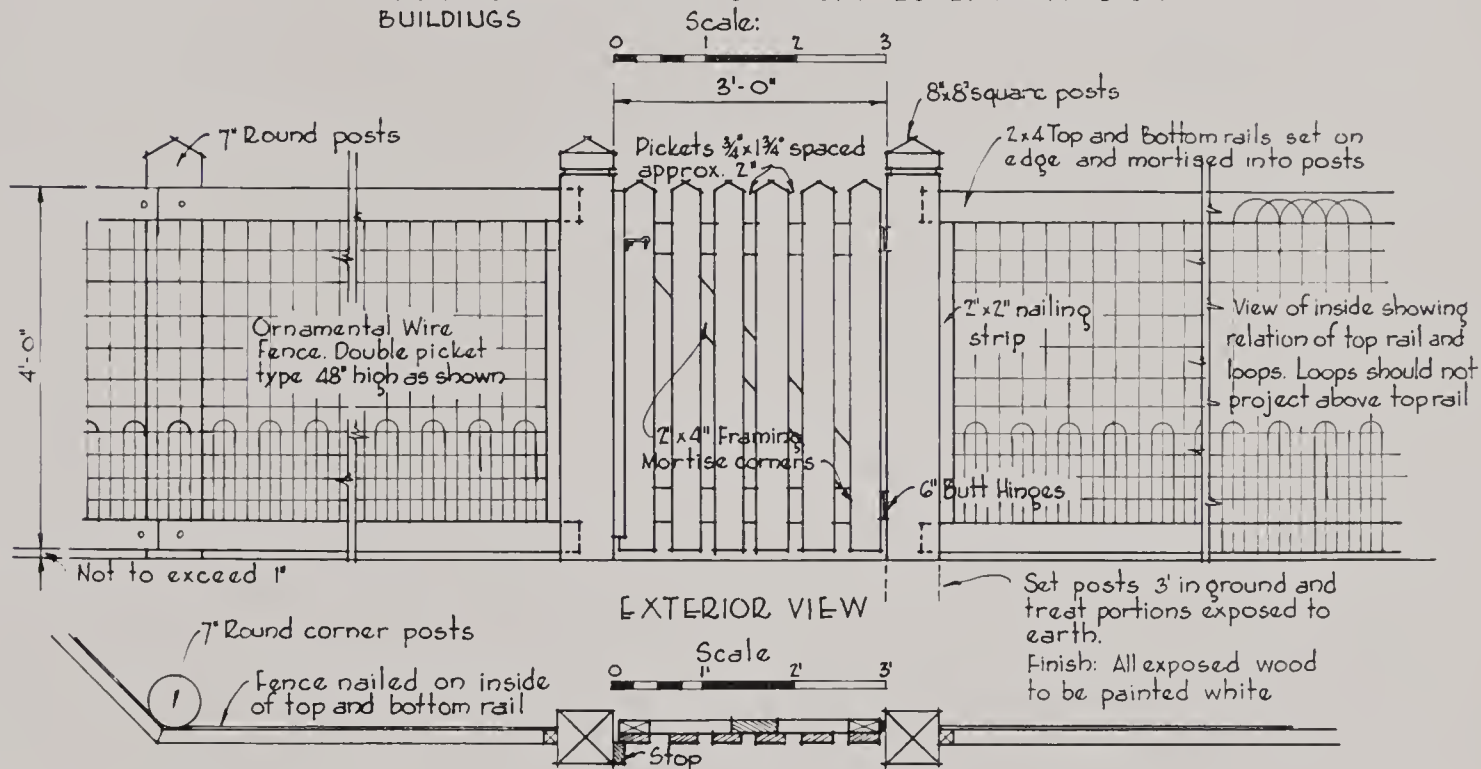 BUILDINGS
Scale:
0 1 2 3
3'-0"
8"x8" square posts
7" Round posts
Pickets ¾"x1¾" spaced
approx. 2"
2x4 Top and Bottom rails set on
edge and mortised into posts
4'-0"
Ornamental Wire
Fence. Double picket
type 48" high as shown
2"x2" nailing
strip
View of inside showing
relation of top rail and
loops. Loops should not
project above top rail
2"x4" Framing
Mortise corners
6" Butt Hinges
Not to exceed 1"
EXTERIOR VIEW
Set posts 3' in ground and
treat portions exposed to
earth.
Finish: All exposed wood
to be painted white
7" Round corner posts
Scale
0 1' 2' 3'
Fence nailed on inside
of top and bottom rail
1
Stop